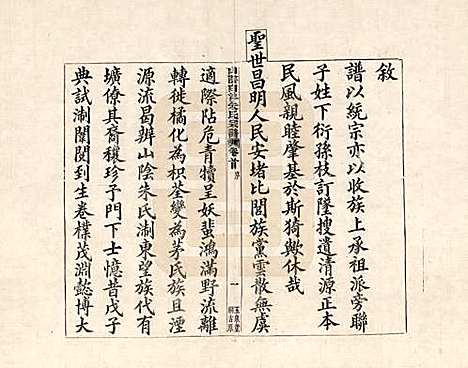 敘
譜以統宗亦以收族上承祖派旁聯
子姓下衍孫枝訂墜搜遺清源正本
民風親睦肇基於斯猗歟休哉
聖世昌明人民安堵比閭族黨雲散無虞
山陰白洋朱氏宗譜 卷首 序 一 玉泉堂
適際阽危青犢呈妖蜚鴻滿野流離
轉徙橘化為枳荃變為茅氏族且湮
源流曷辨山陰朱氏淛東望族代有
壙僚其裔穰珍子門下士憶昔戊子
典試淛闈閱到生卷樸茂淵懿博大